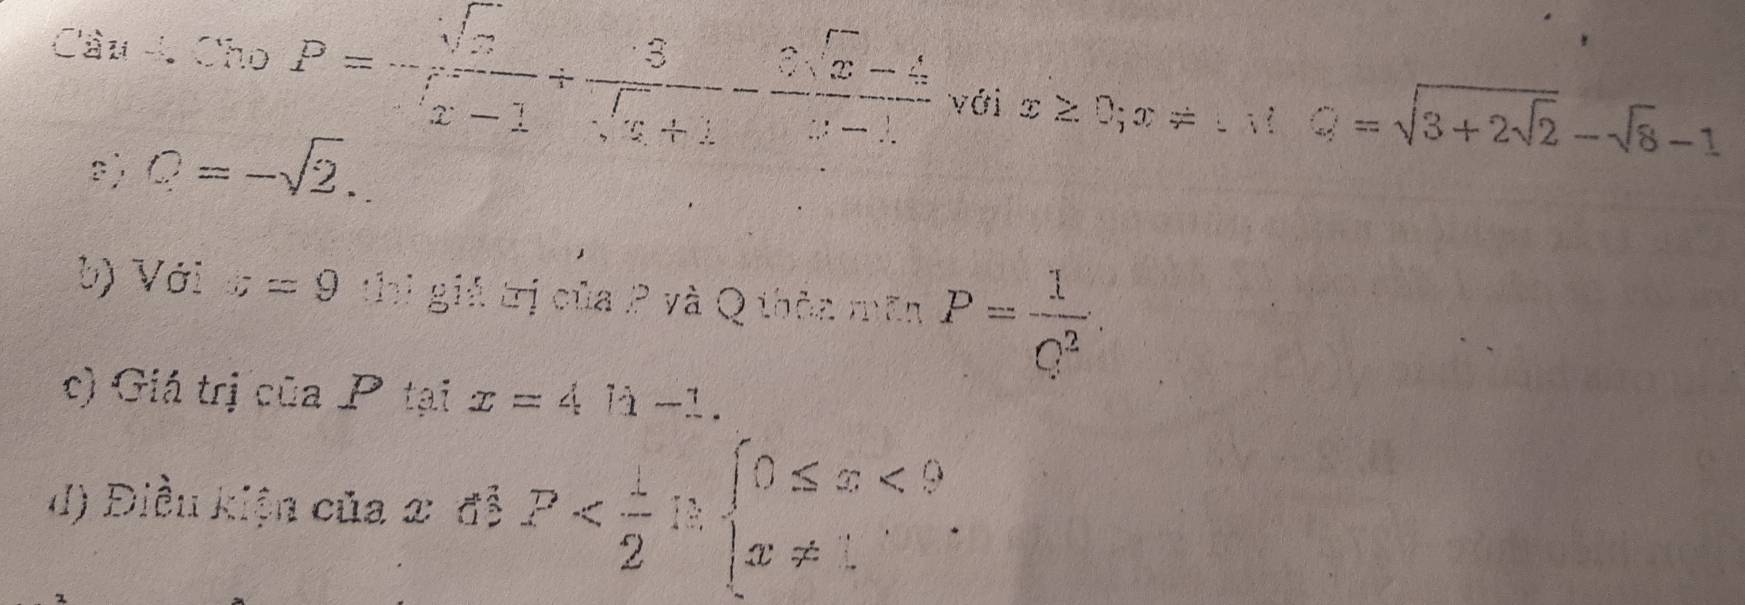 Câu 4. Cho P = \frac{\sqrt{x}}{\sqrt{x}-1} + \frac{3}{\sqrt{x}+1} - \frac{6\sqrt{x}-4}{x-1} với x ≥ 0; x ≠ 1 và Q = \sqrt{3+2\sqrt{2}} - \sqrt{8} - 1
a) Q = -\sqrt{2}.
b) Với x = 9 thì giá trị của P và Q thỏa mãn P = \frac{1}{Q^2}.
c) Giá trị của P tại x = 4 là -1.
d) Điều kiện của x để P < \frac{1}{2} là \begin{cases} 0 ≤ x < 9 \\ x ≠ 1 \end{cases}.